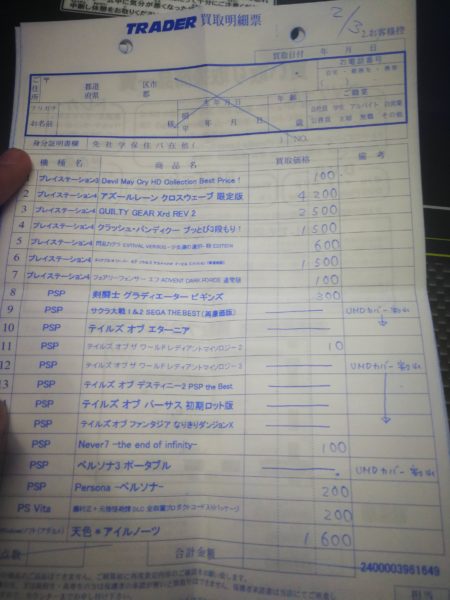 TRADER 買取明細票
2/3
2.お客様控
買取日付 年 月 日
ご住所 〒 都道府県 区市郡
お電話番号
フリガナ
お名前
生年月日
年 月 日
年齢
歳
ご職業
会社員 学生 アルバイト 自営業
公務員 主婦 無職 その他
身分証明書欄 免 社 学 保 住 パ 在 他( ) NO.
機種名 商品名 買取価格 備考
1 プレイステーション3 Devil May Cry HD Collection Best Price! 100
2 プレイステーション4 アズールレーン クロスウェーブ 限定版 4200
3 プレイステーション4 GUILTY GEAR Xrd REV 2 2500
4 プレイステーション4 クラッシュ・バンディクー ブッとび3段もり! 1500
5 プレイステーション4 閃乱カグラ ESTIVAL VERSUS 600
6 プレイステーション4 1500
7 プレイステーション4 フェアリーフェンサー エフ ADVENT DARK FORCE 通常版 100
8 PSP 剣闘士 グラディエーター ビギンズ 300
9 PSP サクラ大戦1&2 SEGA THE BEST(再廉価版) UMDカバー割れ
10 PSP テイルズ オブ エターニア
11 PSP テイルズ オブ ザ ワールド レディアントマイソロジー2 10
12 PSP テイルズ オブ ザ ワールド レディアントマイソロジー3 UMDカバー割れ
13 PSP テイルズ オブ デスティニー2 PSP the Best
PSP テイルズ オブ バーサス 初期ロット版
PSP テイルズ オブ ファンタジア なりきりダンジョンX
PSP Never7 -the end of infinity- 100
PSP ペルソナ3 ポータブル UMDカバー割れ
PSP Persona -ペルソナ- 200
PS Vita 200
Windowsソフト(アダルト) 天色*アイルノーツ 1600
点数 合計金額
2400003961649
担当